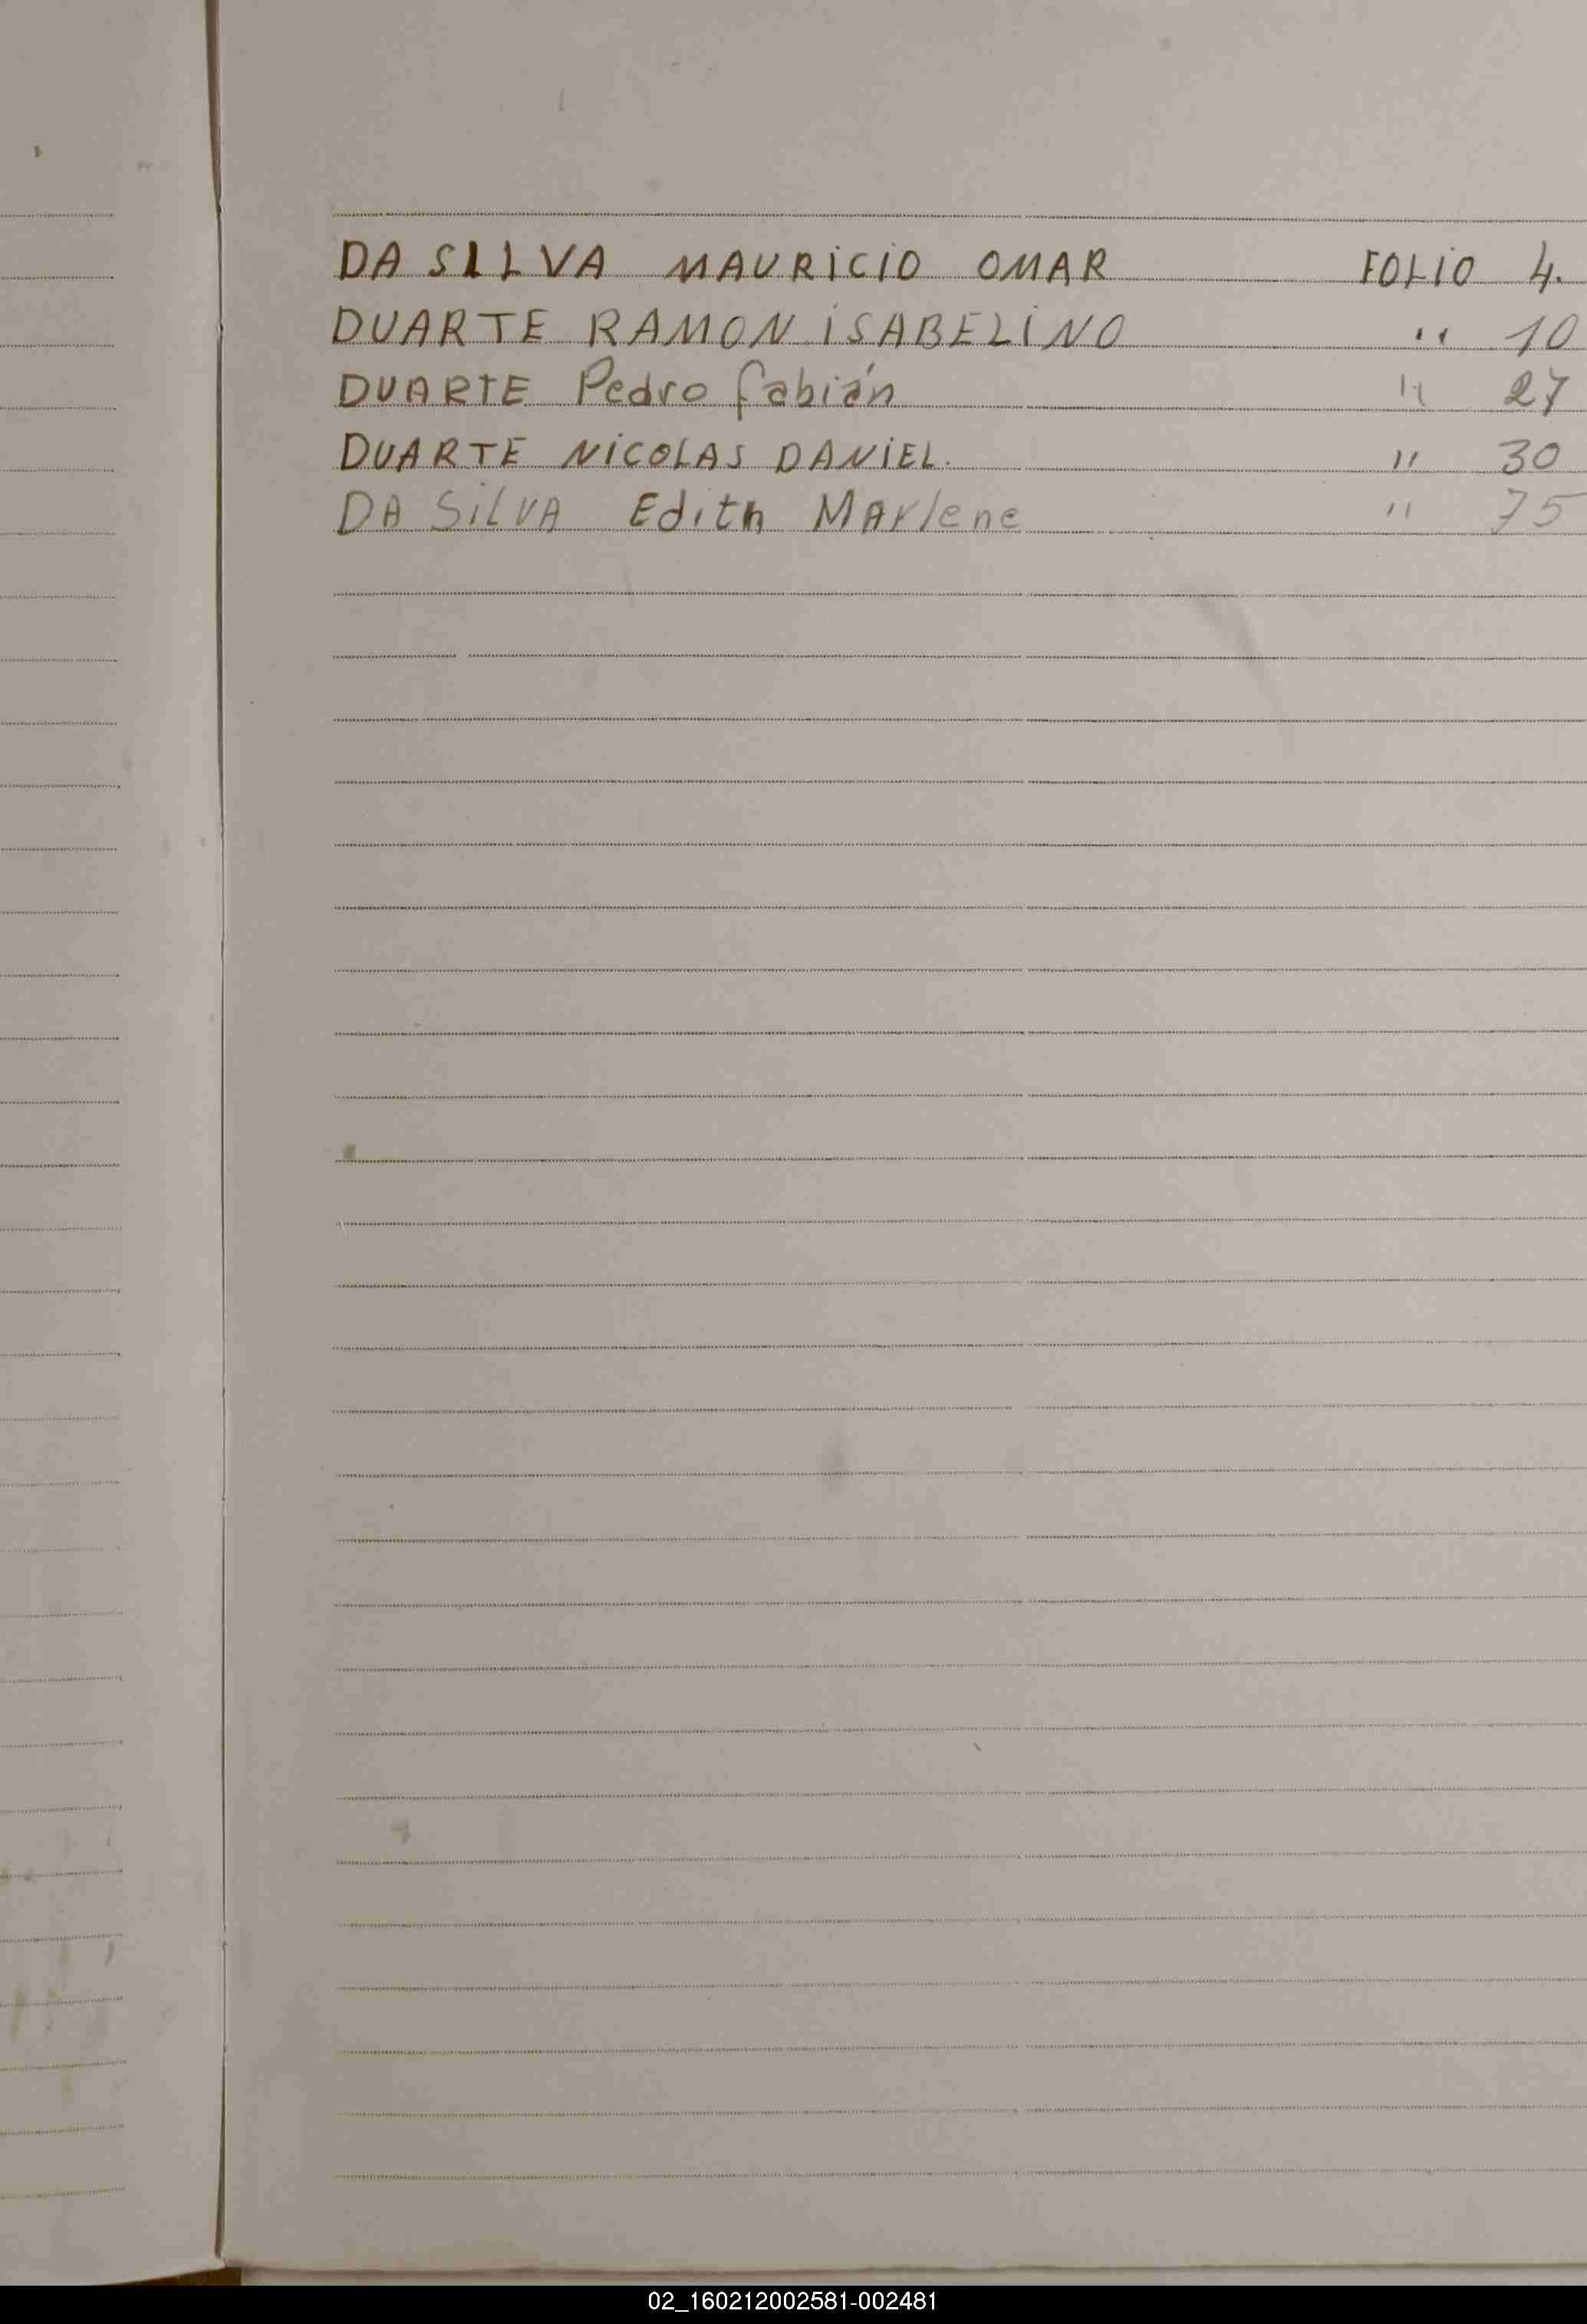 DA SILVA MAURICIO OMAR FOLIO 4.
DUARTE RAMON ISABELINO " 10
DUARTE Pedro fabián " 27
DUARTE NICOLAS DANIEL. " 30
DA SILVA Edith MArlene " 75
02_160212002581-002481